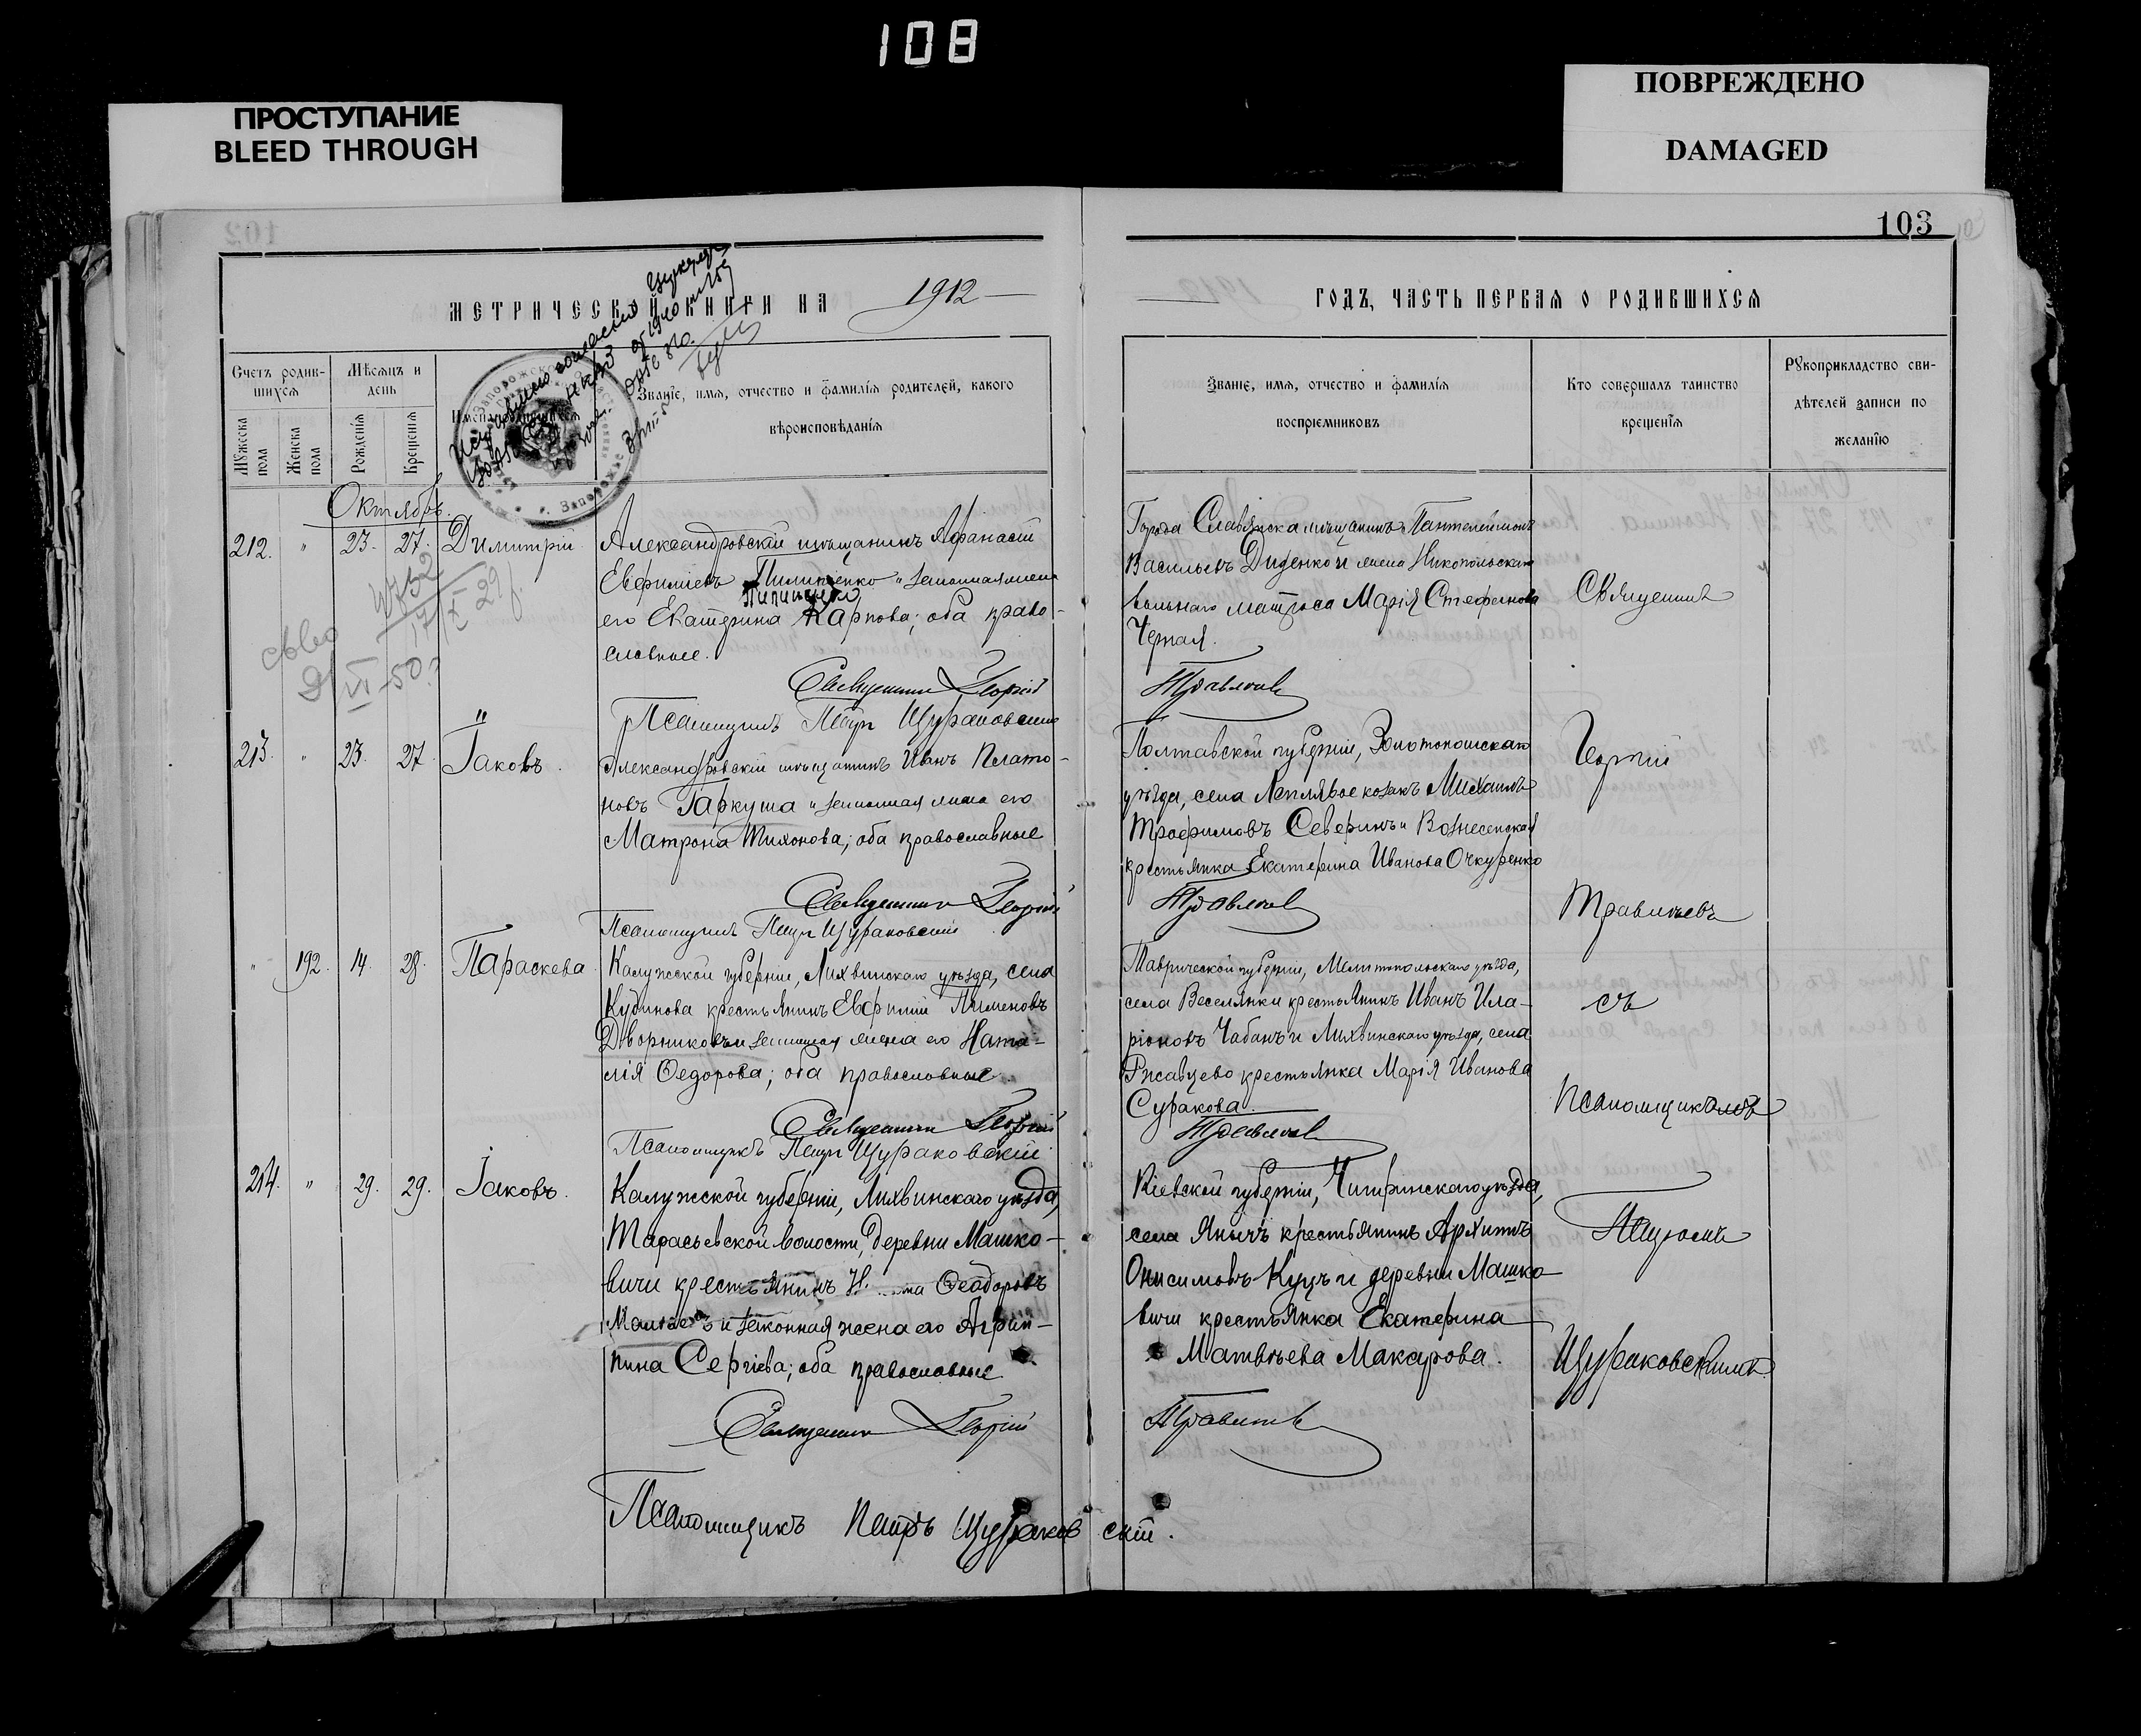 108
ПРОСТУПАНИЕ
BLEED THROUGH
ПОВРЕЖДЕНО
DAMAGED
103
МЕТРИЧЕСКОЙ КНИГИ НА 1912
ГОДЪ, ЧАСТЬ ПЕРВАЯ О РОДИВШИХСЯ
Счетъ родив-
шихся
Мужеска пола
Женска пола
Мѣсяцъ и
день
Рожденія
Крещенія
Имена родившихся
Званіе, имя, отчество и фамилія родителей, какого
вѣроисповѣданія
Званіе, имя, отчество и фамилія
воспріемниковъ
Кто совершалъ таинство
крещенія
Рукоприкладство сви-
дѣтелей записи по
желанію
Октябрь.
212. " 23. 27. Димитрій
Александровскій мѣщанинъ Афанасій
Евфиміевъ Пилипенко и законная жена
Пилипенко
его Екатерина Карпова; оба право-
славные.
Священникъ Георгій
Псаломщикъ Петръ Щураковскій
Города Славянска мѣщанинъ Пантелеймонъ
Васильевъ Диденко и жена Никопольскаго
вольнаго матроса Марія Стефанова
Черная.
Травлевъ
Священникъ
213. " 23. 27. Іаковъ.
Александровскій мѣщанинъ Иванъ Плато-
новъ Гаркуша и законная жена его
Матрона Тихонова; оба православные
Священникъ Георгій
Псаломщикъ Петръ Щураковскій
Полтавской губерніи, Золотоношскаго
уѣзда, села Леплявое козакъ Михаилъ
Трофимовъ Северинъ и Вознесенская
крестьянка Екатерина Иванова Очкуренко
Георгій
Травлевъ
" 192. 14. 28. Параскева
Калужской губерніи, Лихвинскаго уѣзда, села
Кудинова крестьянинъ Евфимій Пименовъ
Дворниковъ и законная жена его Ната-
лія Федорова; оба православные.
Священникъ Георгій
Псаломщикъ Петръ Щураковскій
Таврической губерніи, Мелитопольскаго уѣзда,
села Веселянки крестьянинъ Иванъ Ила-
ріоновъ Чабанъ и Лихвинскаго уѣзда, села
Ржавцево крестьянка Марія Иванова
Суракова.
съ
Псаломщикомъ
214. " 29. 29. Іаковъ.
Калужской губерніи, Лихвинскаго уѣзда,
Тарасьевской волости, деревни Машко-
вичи крестьянинъ Феодоровъ
и законная жена его Агрип-
пина Сергіева; оба православные.
Священникъ Георгій
Псаломщикъ Петръ Щураковскій.
Кіевской губерніи, Чигиринскаго уѣзда,
села Янычъ крестьянинъ Архипъ
Онисимовъ Куцъ и деревни Машко-
вичи крестьянка Екатерина
Матвѣева Макарова.
Петромъ
Щураковскимъ.